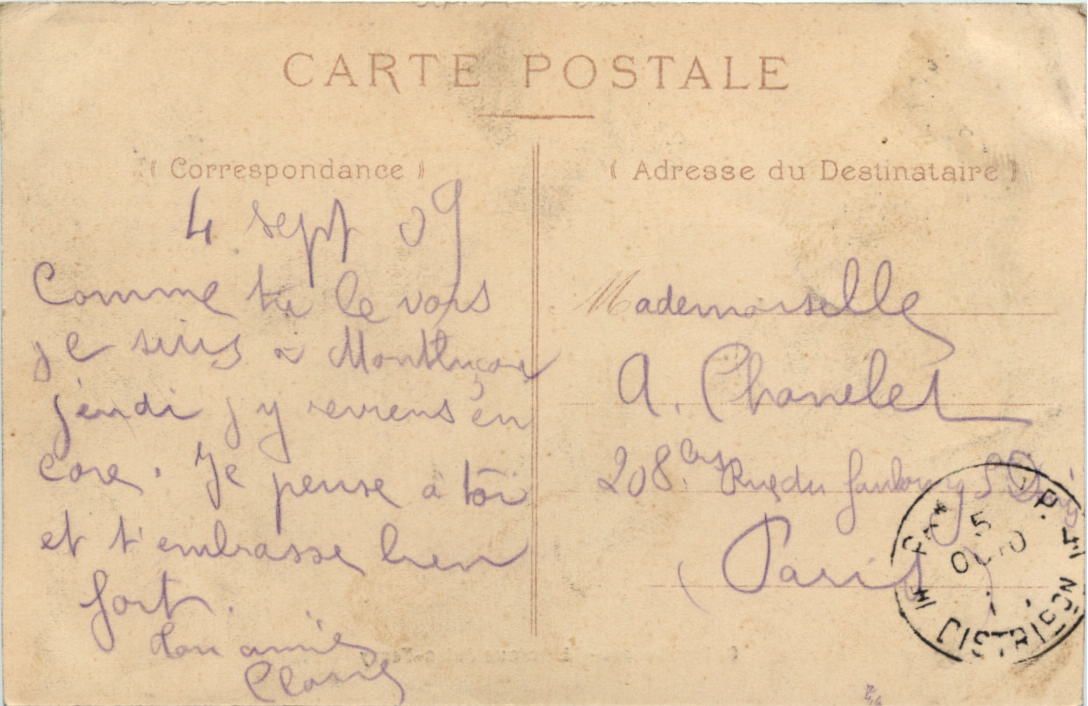 CARTE POSTALE
( Correspondance )
4 sept 09
Comme tu le vois
je suis à Montluçon
jeudi j'y reviens en
core. Je pense à toi
et t'embrasse bien
fort.
Ton amie
Claire
( Adresse du Destinataire )
Mademoiselle
A. Chanelet
208 Rue du faubourg St Denis
Paris
DISTRIBUTION